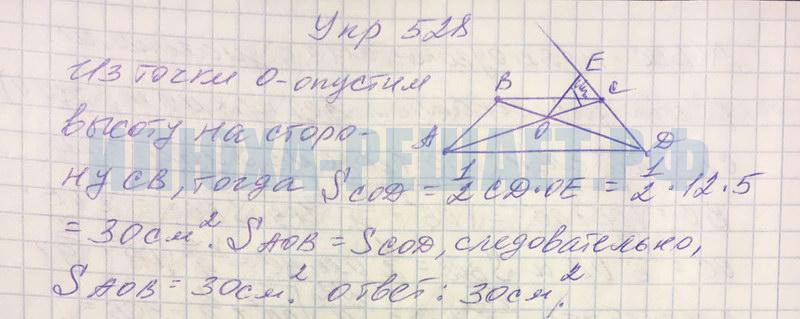 Упр 528
Из точки О-опустим
высоту на сторо-
ну СВ, тогда SCOD = 1/2 CD·OE = 1/2 · 12 · 5
= 30см². SAOB = SCOD, следовательно,
SAOB = 30см². ответ: 30см².
E
B
C
O
A
D
ЮНЮХА-РЕШАЕТ.РФ